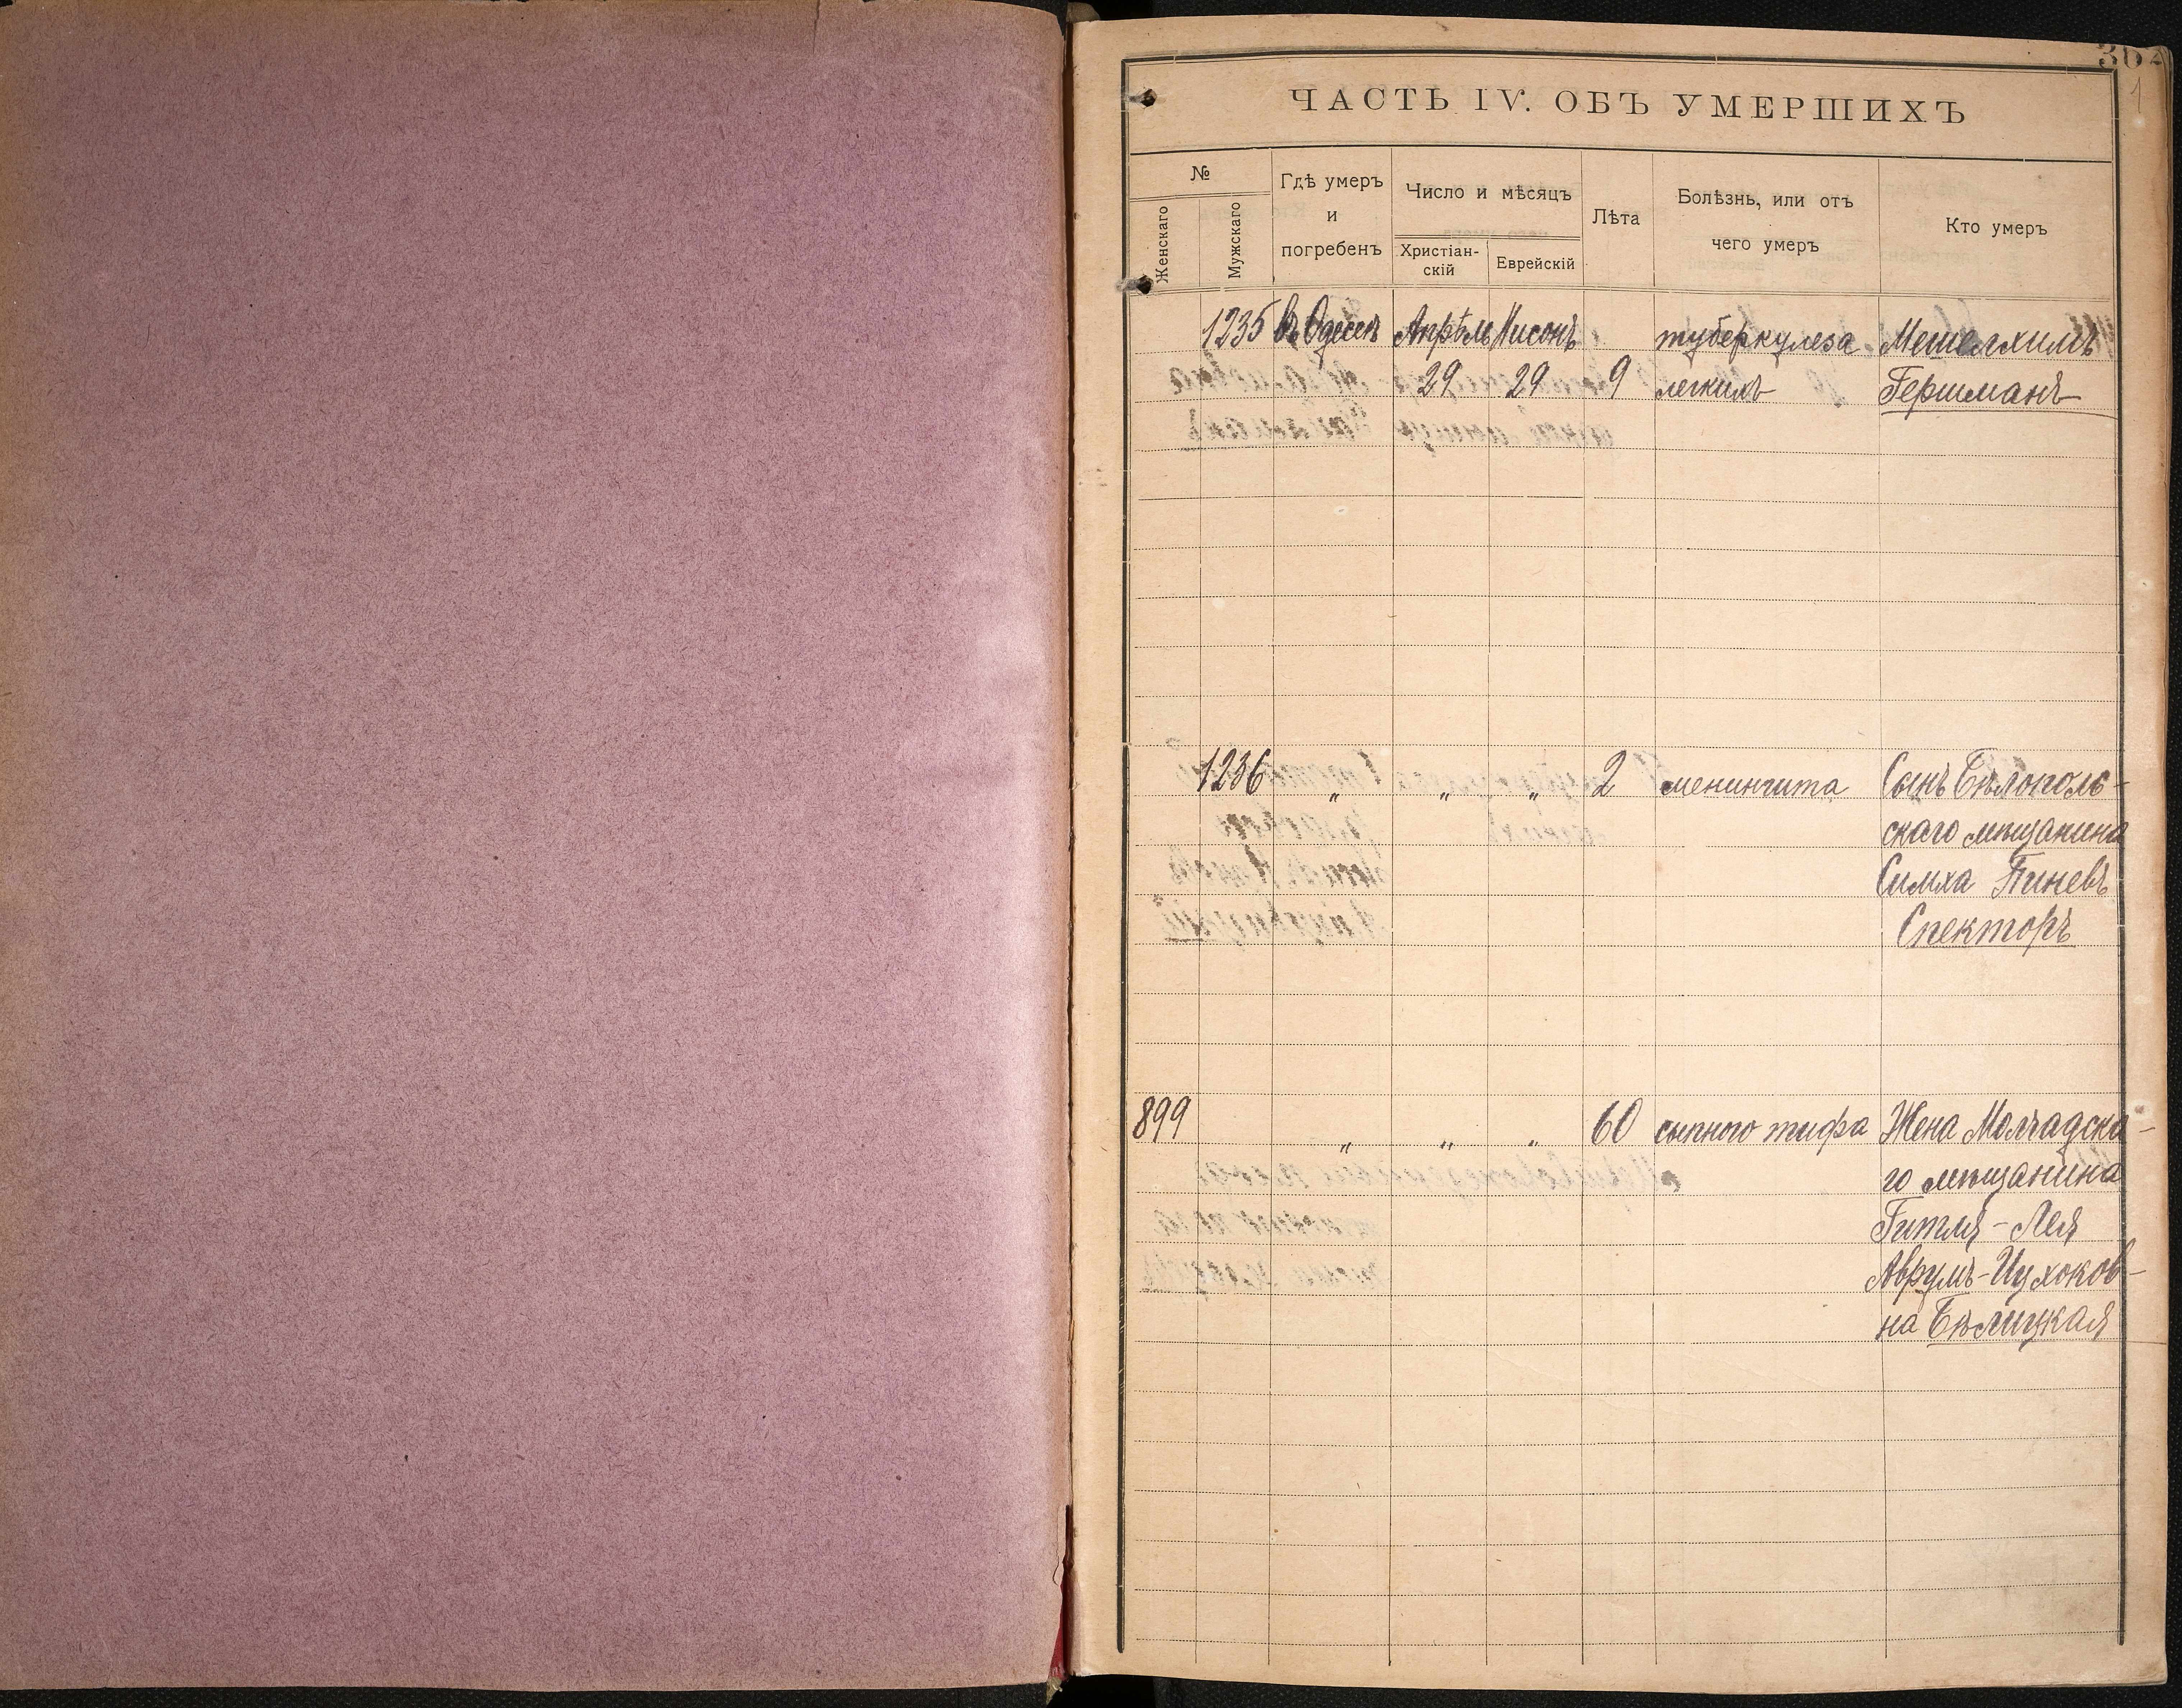 362
1
ЧАСТЬ IV. ОБЪ УМЕРШИХЪ
№
Женскаго
Мужскаго
Гдѣ умеръ
и
погребенъ
Число и мѣсяцъ
Христіан-
скій
Еврейскій
Лѣта
Болѣзнь, или отъ
чего умеръ
Кто умеръ
1235 въ Одессѣ Апрѣль Нисонъ туберкулеза Мешелхимъ
29 29 9 легкихъ Гершманъ
1236 " " " 2 менингита Сынъ Бѣлополь-
скаго мѣщанина
Симха Пиневъ
Спекторъ
899 " " " 60 сыпного тифа Жена Молчадска-
го мѣщанина
Гитля-Лея
Аврумъ-Ицхоков-
на Бѣлицкая